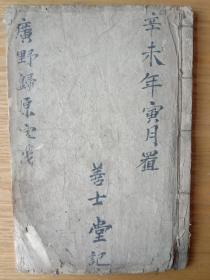 辛未年寅月置
善士堂記
廣野歸原